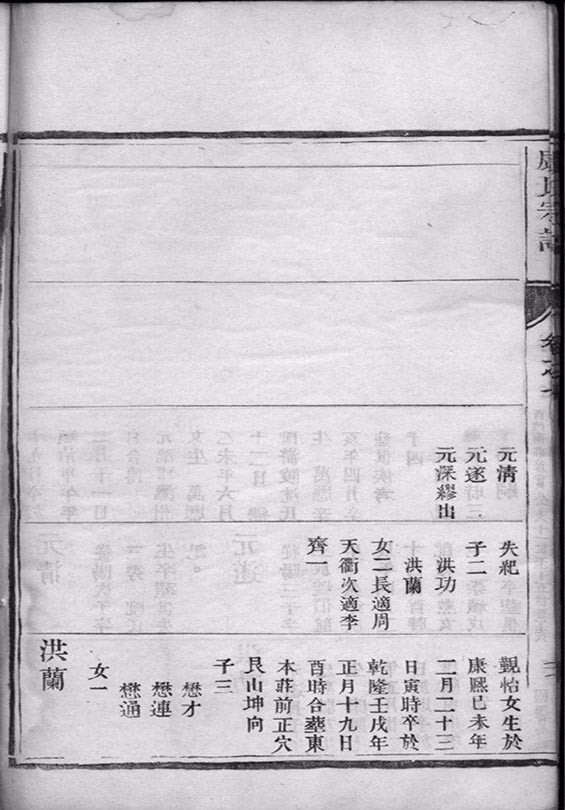 氏宗譜
卷之十
元清
元遂
元深繆出
失紀
子二
洪功
洪蘭
女二長適周
天衢次適李
齊一
觀怡女生於
康熙己未年
二月二十三
日寅時卒於
乾隆壬戌年
正月十九日
酉時合塟東
本莊前正穴
艮山坤向
子三
懋才
懋連
懋通
女一
洪蘭